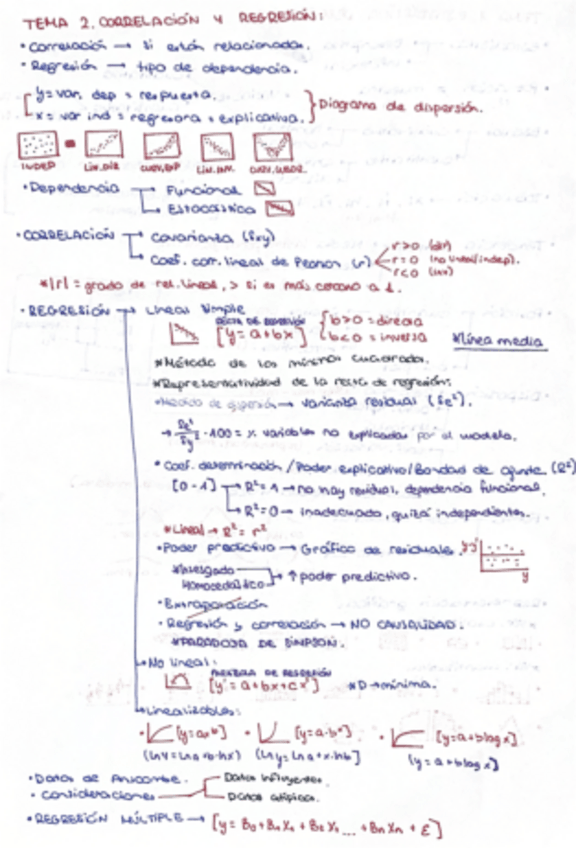 TEMA 2. CORRELACIÓN Y REGRESIÓN:
• Correlación → si están relacionadas.
• Regresión → tipo de dependencia.
y = var. dep = respuesta.
x = var ind = regresora = explicativa.
} Diagrama de dispersión.
INDEP LIN.DIR CURV.DIR LIN.INV. CURV.
• Dependencia → Funcional
→ Estocástica
• CORRELACIÓN → Covarianza (Sxy)
→ Coef. corr. lineal de Pearson (r) r>0 (dir)
r=0 (no lineal/indep).
r<0 (inv)
*|r| = grado de rel. lineal, > si es más cercano a 1.
• REGRESIÓN → Lineal Simple
RECTA DE REGRESIÓN
[y = a+bx] { b>0 = directa
b<0 = inversa
*Línea media
*Método de los mínimos cuadrados.
*Representatividad de la recta de regresión:
•Medida de dispersión → varianza residual (Se²).
→ Se²/Sy² · 100 = % variables no explicadas por el modelo.
• Coef. determinación / Poder explicativo / Bondad de ajuste (R²)
[0-1] → R²=1 → no hay residual, dependencia funcional.
→ R²=0 → Inadecuado, quizá independientes.
*Lineal → R² = r²
• Poder predictivo → Gráfico de residuales
*Insesgado
Homocedástico
→ ↑ poder predictivo.
y
• Extrapolación
• Regresión y correlación → NO CAUSALIDAD.
*PARADOJA DE SIMPSON.
→ No lineal:
PARÁBOLA DE REGRESIÓN
[y = a+bx+cx²] *D → mínima.
→ Linealizables:
• [y=ax^b] • [y=a·b^x] • [y=a+b log x]
(ln y = ln a + b·ln x) (ln y = ln a + x·ln b] (y = a + b log x)
• Datos de Anscombe.
• Consideraciones
Datos influyentes.
Datos atípicos.
• REGRESIÓN MÚLTIPLE → [y = B₀ + B₁X₁ + B₂X₂ ... + BnXn + ε]